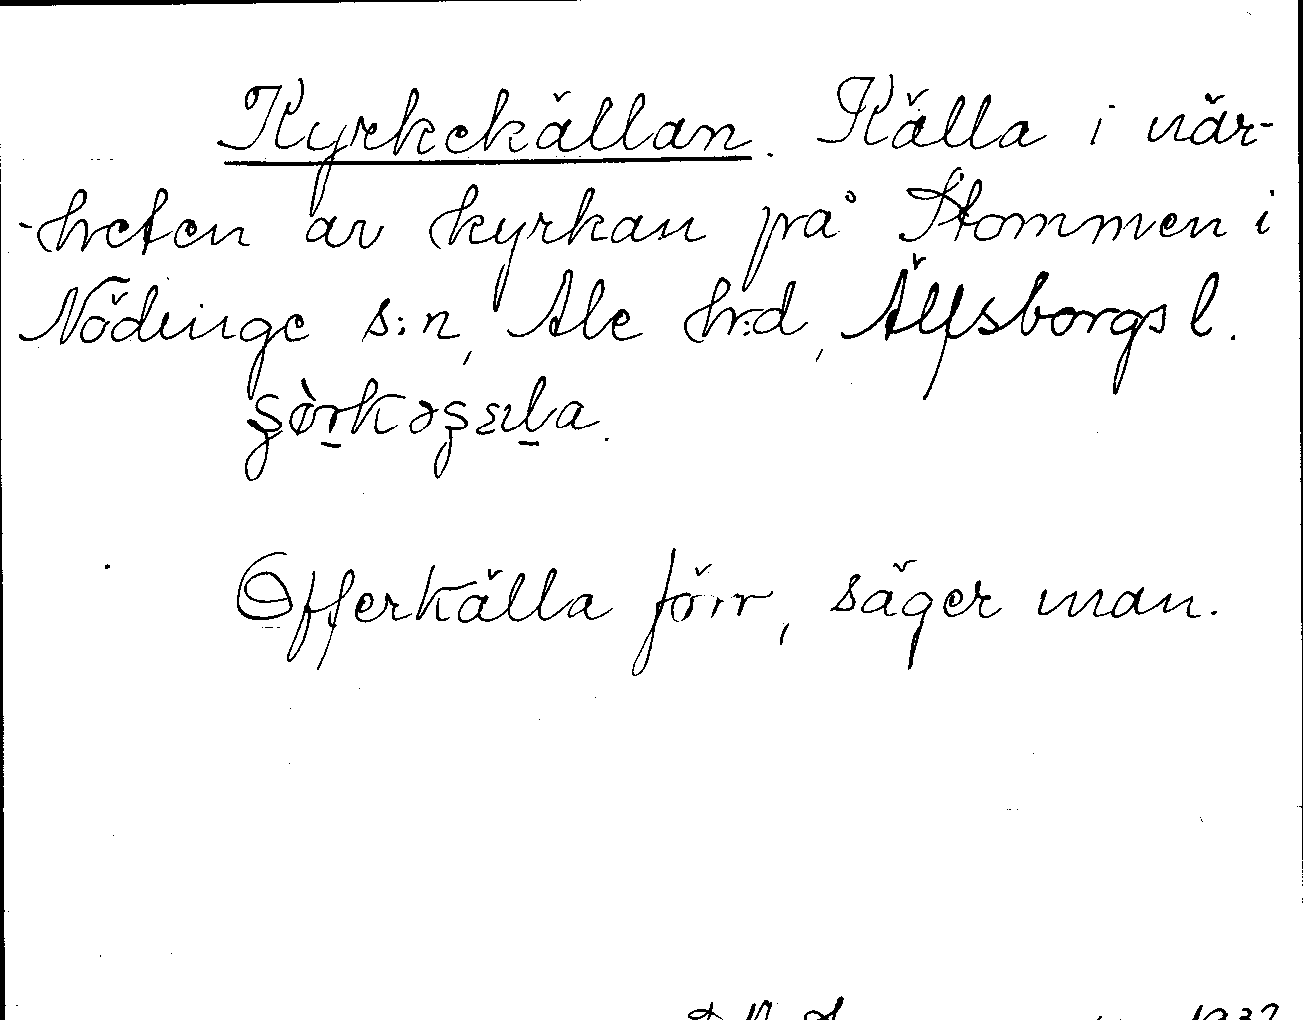 Kyrkekällan. Källa i när-
-heten av kyrkan på Stommen i
Nödinge s:n, Ale hrd, Älfsborgs l.
Offerkälla förr, säger man.
1932